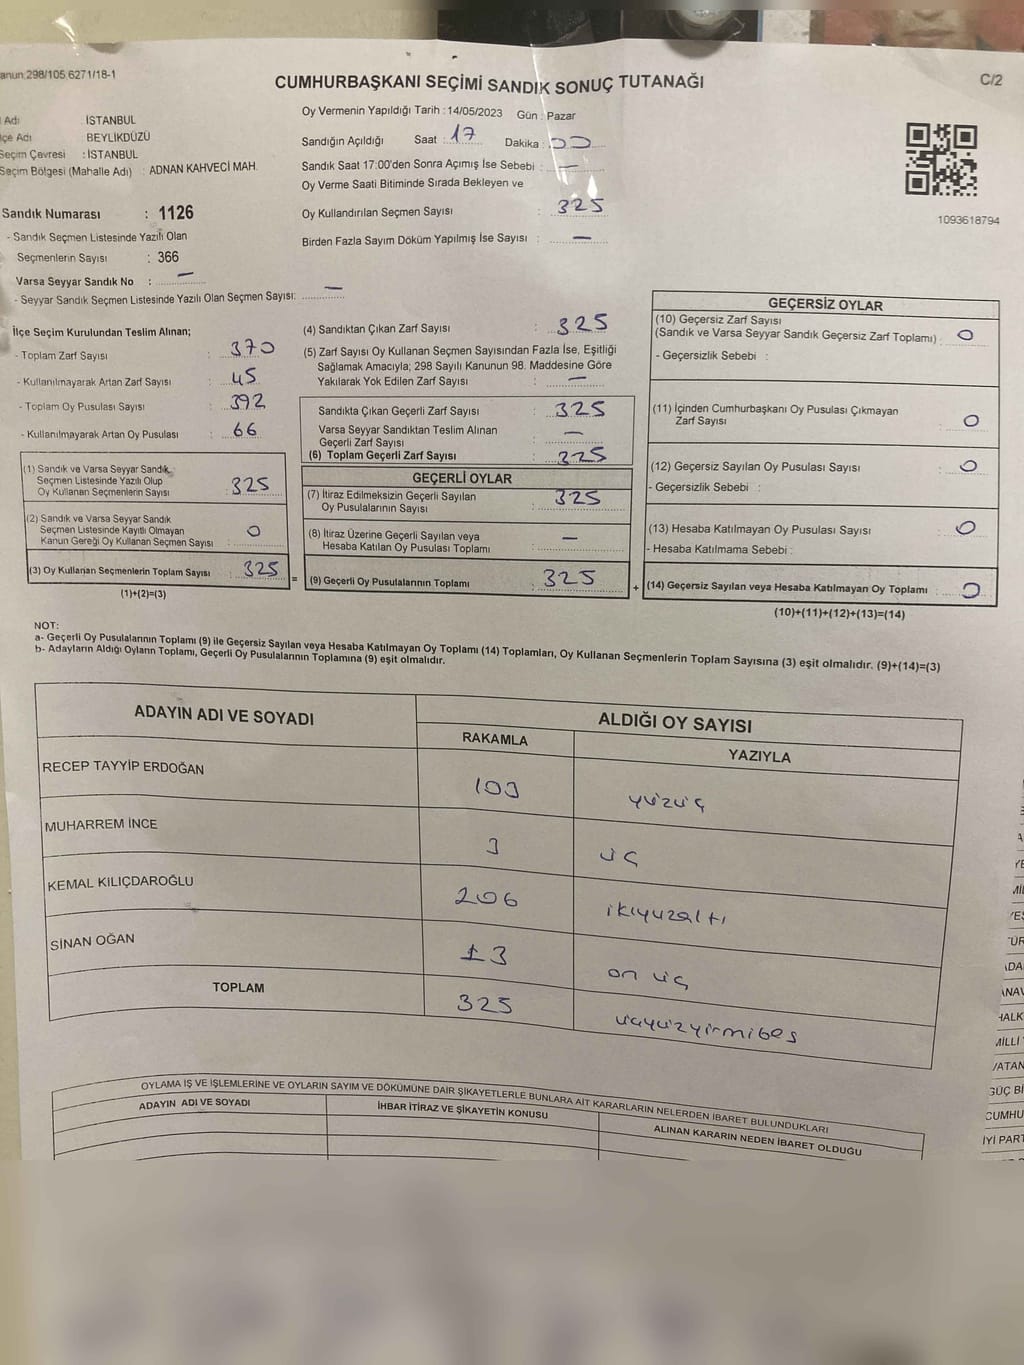 anun:298/105,6271/18-1
CUMHURBAŞKANI SEÇİMİ SANDIK SONUÇ TUTANAĞI
C/2
Adı : İSTANBUL
çe Adı : BEYLİKDÜZÜ
Seçim Çevresi : İSTANBUL
Seçim Bölgesi (Mahalle Adı) : ADNAN KAHVECİ MAH.
Sandık Numarası : 1126
- Sandık Seçmen Listesinde Yazılı Olan
Seçmenlerin Sayısı : 366
Varsa Seyyar Sandık No : —
- Seyyar Sandık Seçmen Listesinde Yazılı Olan Seçmen Sayısı: —
Oy Vermenin Yapıldığı Tarih : 14/05/2023 Gün : Pazar
Sandığın Açıldığı Saat : 17 Dakika : 00
Sandık Saat 17:00'den Sonra Açımış İse Sebebi : —
Oy Verme Saati Bitiminde Sırada Bekleyen ve
Oy Kullandırılan Seçmen Sayısı : 325
Birden Fazla Sayım Döküm Yapılmış İse Sayısı : —
1093618794
İlçe Seçim Kurulundan Teslim Alınan;
- Toplam Zarf Sayısı : 370
- Kullanılmayarak Artan Zarf Sayısı : 45
- Toplam Oy Pusulası Sayısı : 392
- Kullanılmayarak Artan Oy Pusulası : 66
(1) Sandık ve Varsa Seyyar Sandık
Seçmen Listesinde Yazılı Olup
Oy Kullanan Seçmenlerin Sayısı : 325
(2) Sandık ve Varsa Seyyar Sandık
Seçmen Listesinde Kayıtlı Olmayan
Kanun Gereği Oy Kullanan Seçmen Sayısı : 0
(3) Oy Kullanan Seçmenlerin Toplam Sayısı : 325
(1)+(2)=(3)
=
(4) Sandıktan Çıkan Zarf Sayısı : 325
(5) Zarf Sayısı Oy Kullanan Seçmen Sayısından Fazla İse, Eşitliği
Sağlamak Amacıyla; 298 Sayılı Kanunun 98. Maddesine Göre
Yakılarak Yok Edilen Zarf Sayısı : —
Sandıkta Çıkan Geçerli Zarf Sayısı : 325
Varsa Seyyar Sandıktan Teslim Alınan
Geçerli Zarf Sayısı : —
(6) Toplam Geçerli Zarf Sayısı : 325
GEÇERLİ OYLAR
(7) İtiraz Edilmeksizin Geçerli Sayılan
Oy Pusulalarının Sayısı : 325
(8) İtiraz Üzerine Geçerli Sayılan veya
Hesaba Katılan Oy Pusulası Toplamı : —
(9) Geçerli Oy Pusulalarının Toplamı : 325
+
GEÇERSİZ OYLAR
(10) Geçersiz Zarf Sayısı
(Sandık ve Varsa Seyyar Sandık Geçersiz Zarf Toplamı) : 0
- Geçersizlik Sebebi :
(11) İçinden Cumhurbaşkanı Oy Pusulası Çıkmayan
Zarf Sayısı : 0
(12) Geçersiz Sayılan Oy Pusulası Sayısı : 0
- Geçersizlik Sebebi :
(13) Hesaba Katılmayan Oy Pusulası Sayısı : 0
- Hesaba Katılmama Sebebi :
(14) Geçersiz Sayılan veya Hesaba Katılmayan Oy Toplamı : 0
(10)+(11)+(12)+(13)=(14)
NOT:
a- Geçerli Oy Pusulalarının Toplamı (9) ile Geçersiz Sayılan veya Hesaba Katılmayan Oy Toplamı (14) Toplamları, Oy Kullanan Seçmenlerin Toplam Sayısına (3) eşit olmalıdır. (9)+(14)=(3)
b- Adayların Aldığı Oyların Toplamı, Geçerli Oy Pusulalarının Toplamına (9) eşit olmalıdır.
ADAYIN ADI VE SOYADI ALDIĞI OY SAYISI
RAKAMLA YAZIYLA
RECEP TAYYİP ERDOĞAN 103 yüzüç
MUHARREM İNCE 3 üç
KEMAL KILIÇDAROĞLU 206 ikiyüzaltı
SİNAN OĞAN 13 on üç
TOPLAM 325 üçyüzyirmibeş
OYLAMA İŞ VE İŞLEMLERİNE VE OYLARIN SAYIM VE DÖKÜMÜNE DAİR ŞİKAYETLERLE BUNLARA AİT KARARLARIN NELERDEN İBARET BULUNDUKLARI
ADAYIN ADI VE SOYADI İHBAR İTİRAZ VE ŞİKAYETİN KONUSU ALINAN KARARIN NEDEN İBARET OLDUĞU
HALK
MİLLİ
VATAN
GÜÇ Bİ
CUMHU
İYİ PART